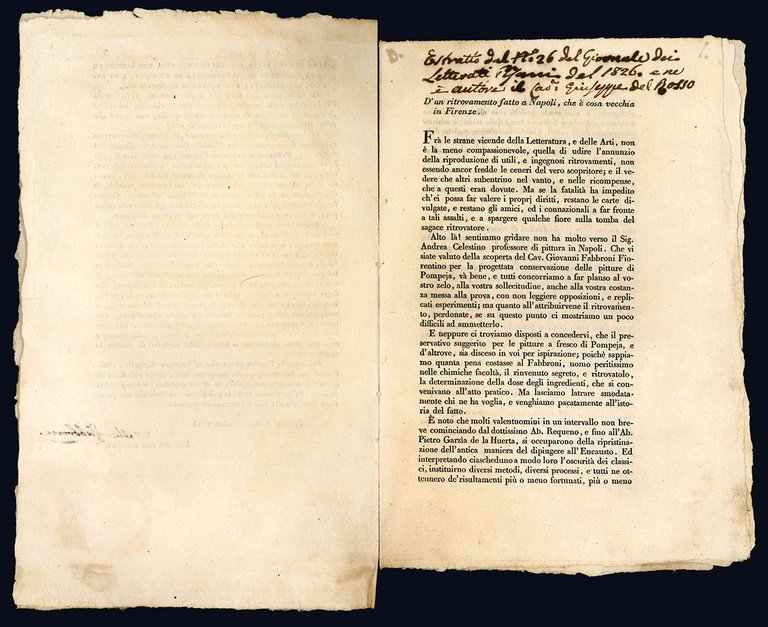 Estratto dal No. 26 del Giornale dei
Letterati Pisani del 1826. e ne
è autore il Cav. Giuseppe del Rosso
D'un ritrovamento fatto a Napoli, che è cosa vecchia
in Firenze.
Frà le strane vicende della Letteratura, e delle Arti, non
è la meno compassionevole, quella di udire l'annunzio
della riproduzione di utili, e ingegnosi ritrovamenti, non
essendo ancor fredde le ceneri del vero scopritore; e il ve-
dere che altri subentrino nel vanto, e nelle ricompense,
che a questi eran dovute. Ma se la fatalità ha impedito
ch'ei possa far valere i proprj diritti, restano le carte di-
vulgate, e restano gli amici, ed i connazionali a far fronte
a tali assalti, e a spargere qualche fiore sulla tomba del
sagace ritrovatore.
Alto là! sentimmo gridare non ha molto verso il Sig.
Andrea Celestino professore di pittura in Napoli. Che vi
siate valuto della scoperta del Cav. Giovanni Fabbroni Fio-
rentino per la progettata conservazione delle pitture di
Pompeja, và bene, e tutti concorriamo a far plauso al vo-
stro zelo, alla vostra sollecitudine, anche alla vostra costan-
za messa alla prova, con non leggiere opposizioni, e repli-
cati esperimenti; ma quanto all'attribuirvene il ritrovamen-
to, perdonate, se su questo punto ci mostriamo un poco
difficili ad ammetterlo.
E neppure ci troviamo disposti a concedervi, che il pre-
servativo suggerito per le pitture a fresco di Pompeja, e
d'altrove, sia disceso in voi per ispirazione; poichè sappia-
mo quanta pena costasse al Fabbroni, uomo peritissimo
nelle chimiche facoltà, il rinvenuto segreto, e ritrovatolo,
la determinazione della dose degli ingredienti, che si con-
venivano all'atto pratico. Ma lasciamo latrare smodata-
mente chi ne ha voglia, e venghiamo pacatamente all'isto-
ria del fatto.
È noto che molti valentuomini in un intervallo non bre-
ve cominciando dal dottissimo Ab. Requeno, e fino all'Ab.
Pietro Garzia de la Huerta, si occuparono della ripristina-
zione dell'antica maniera del dipingere all'Encausto. Ed
interpretando ciascheduno a modo loro l'oscurità dei classi-
ci, instituirno diversi metodi, diversi processi, e tutti ne ot-
tennero de'risultamenti più o meno fortunati, più o meno